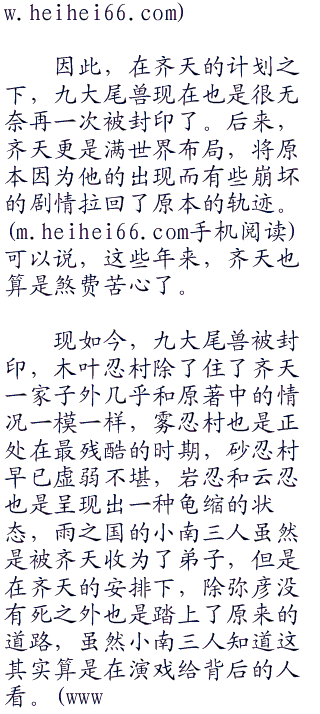 w.heihei66.com)
因此，在齐天的计划之
下，九大尾兽现在也是很无
奈再一次被封印了。后来，
齐天更是满世界布局，将原
本因为他的出现而有些崩坏
的剧情拉回了原本的轨迹。
(m.heihei66.com手机阅读)
可以说，这些年来，齐天也
算是煞费苦心了。
现如今，九大尾兽被封
印，木叶忍村除了住了齐天
一家子外几乎和原著中的情
况一模一样，雾忍村也是正
处在最残酷的时期，砂忍村
早已虚弱不堪，岩忍和云忍
也是呈现出一种龟缩的状
态，雨之国的小南三人虽然
是被齐天收为了弟子，但是
在齐天的安排下，除弥彦没
有死之外也是踏上了原来的
道路，虽然小南三人知道这
其实算是在演戏给背后的人
看。(www